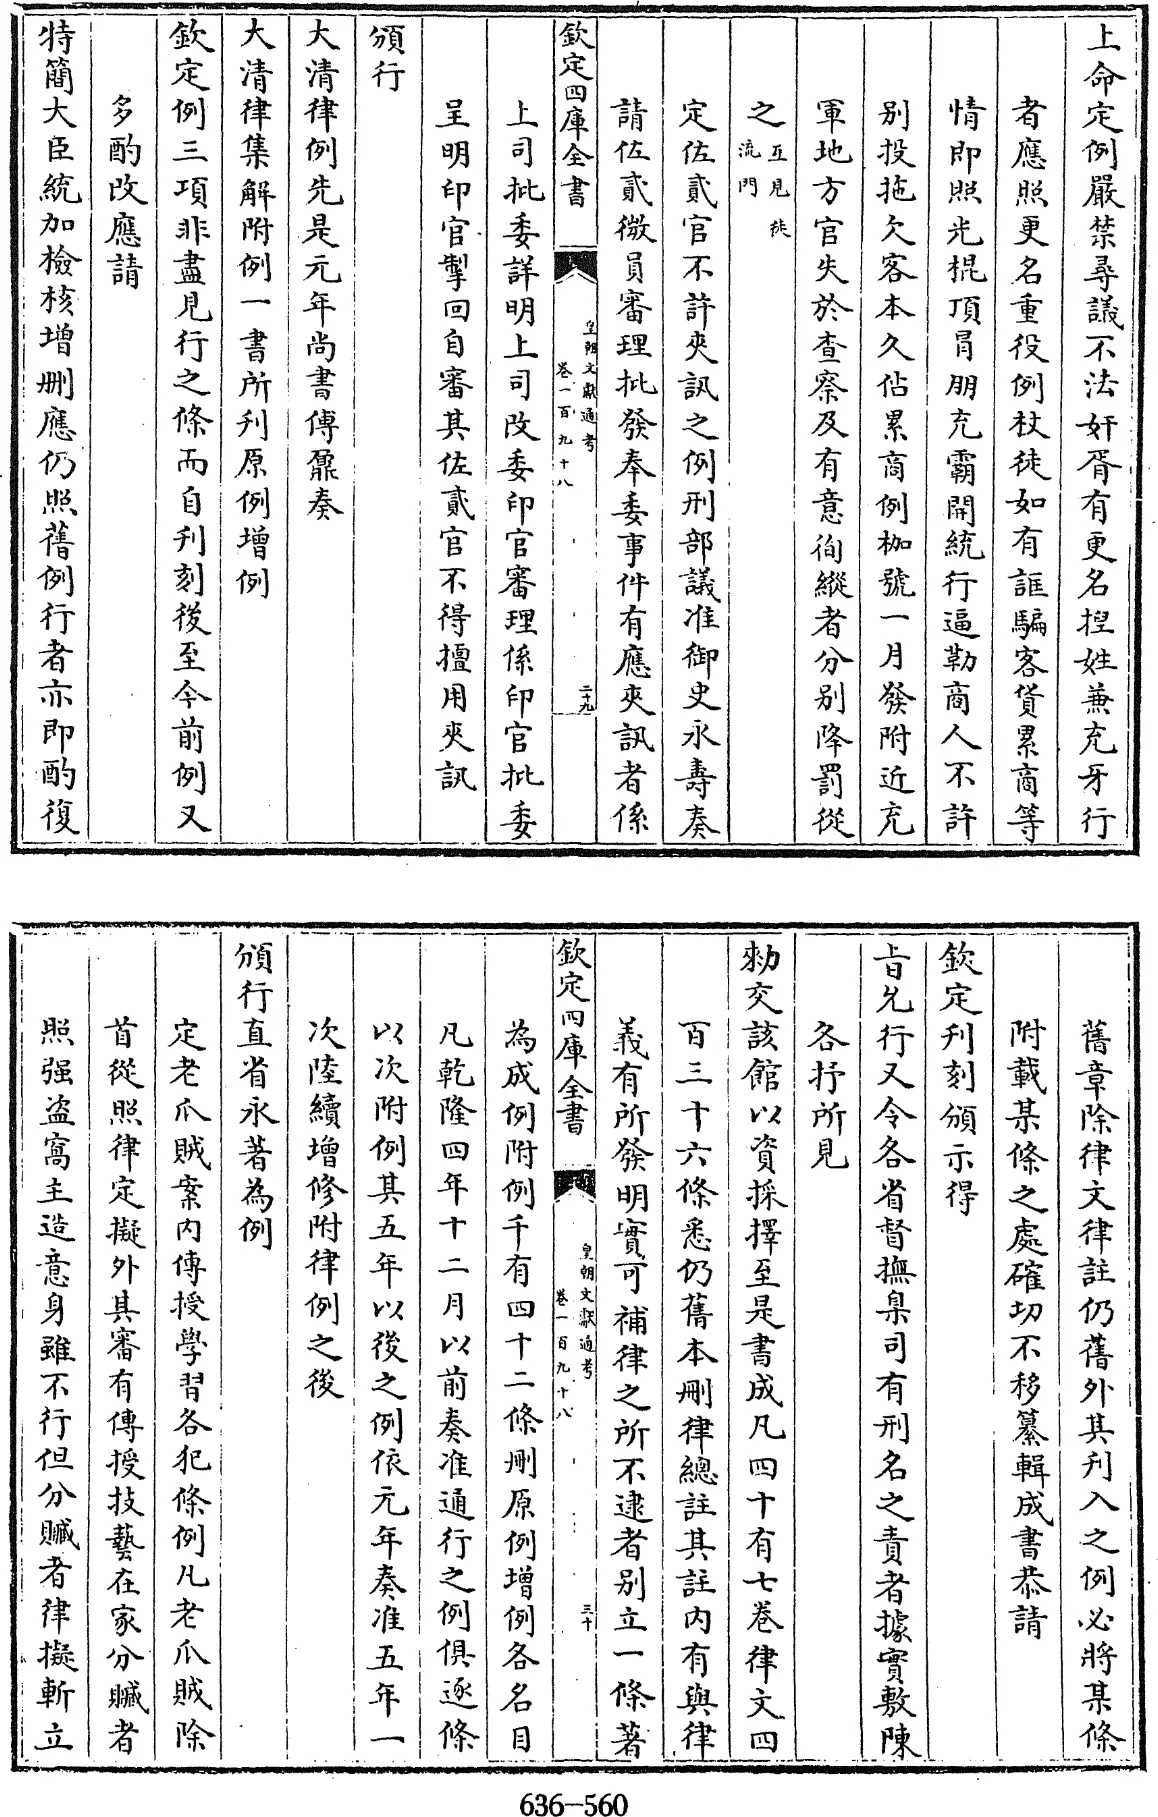 上命定例嚴禁尋議不法奸胥有更名揑姓兼充牙行
者應照更名重役例杖徒如有誆騙客貨累商等
情即照光棍頂冒朋充霸開統行逼勒商人不許
別投拖欠客本久佔累商例枷號一月發附近充
軍地方官失於查察及有意徇縱者分別降罰從
之互見徒流門
定佐貳官不許夾訊之例刑部議准御史永壽奏
請佐貳微員審理批發奉委事件有應夾訊者係
欽定四庫全書
皇朝文獻通考
卷一百九十八
二十九
上司批委詳明上司改委印官審理係印官批委
呈明印官掣回自審其佐貳官不得擅用夾訊
頒行
大清律例先是元年尚書傅鼐奏
大清律集解附例一書所刋原例增例
欽定例三項非盡見行之條而自刋刻後至今前例又
多酌改應請
特簡大臣統加檢核增刪應仍照舊例行者亦即酌復
舊章除律文律註仍舊外其刋入之例必將某條
附載某條之處確切不移纂輯成書恭請
欽定刋刻頒示得
旨允行又令各省督撫臬司有刑名之責者據實敷陳
各抒所見
勅交該館以資採擇至是書成凡四十有七卷律文四
百三十六條悉仍舊本刪律總註其註內有與律
義有所發明實可補律之所不逮者別立一條著
欽定四庫全書
皇朝文獻通考
卷一百九十八
三十
為成例附例千有四十二條刪原例增例各名目
凡乾隆四年十二月以前奏准通行之例俱逐條
以次附例其五年以後之例依元年奏准五年一
次陸續增修附律例之後
頒行直省永著為例
定老爪賊案內傳授學習各犯條例凡老爪賊除
首從照律定擬外其審有傳授技藝在家分贓者
照强盜窩主造意身雖不行但分贓者律擬斬立
636-560